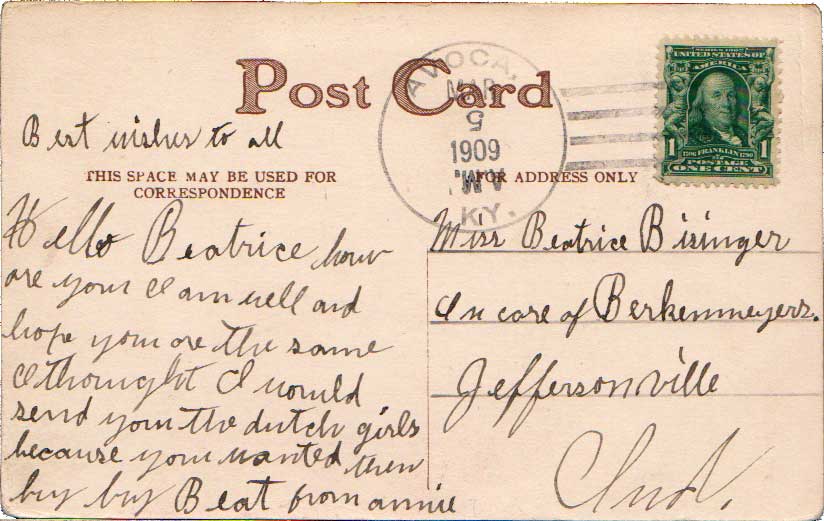 Post Card
AVOCA,
MAR
9
1909
A.M.
KY.
SERIES 1902
UNITED STATES OF
AMERICA
1706 FRANKLIN 1790
1 POSTAGE 1
ONE CENT
Best wishes to all
THIS SPACE MAY BE USED FOR
CORRESPONDENCE
FOR ADDRESS ONLY
Hello Beatrice how
are your I am well and
hope your are the same
I thought I would
send your the dutch girls
because your wanted them
buy buy Beat from annie
Miss Beatrice Bisinger
In care of Berkenmeyers.
Jeffersonville
Ind.